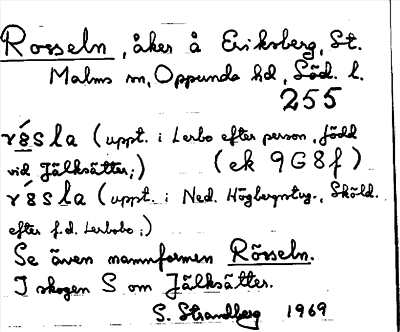 Rosseln, åker å Eriksberg, St.
Malms sn, Oppunda hd, Söd. l.
255
rɞ́sla (uppt. i Lerbo efter person, född
vid Jälksätter;) (ek 9G8f)
rɞ́sla (uppt. i Ned. Högbergstug., Sköld.
efter f.d. Lerbobo;)
Se även namnformen Rösseln.
I skogen S om Jälksätter.
S. Strandberg 1969